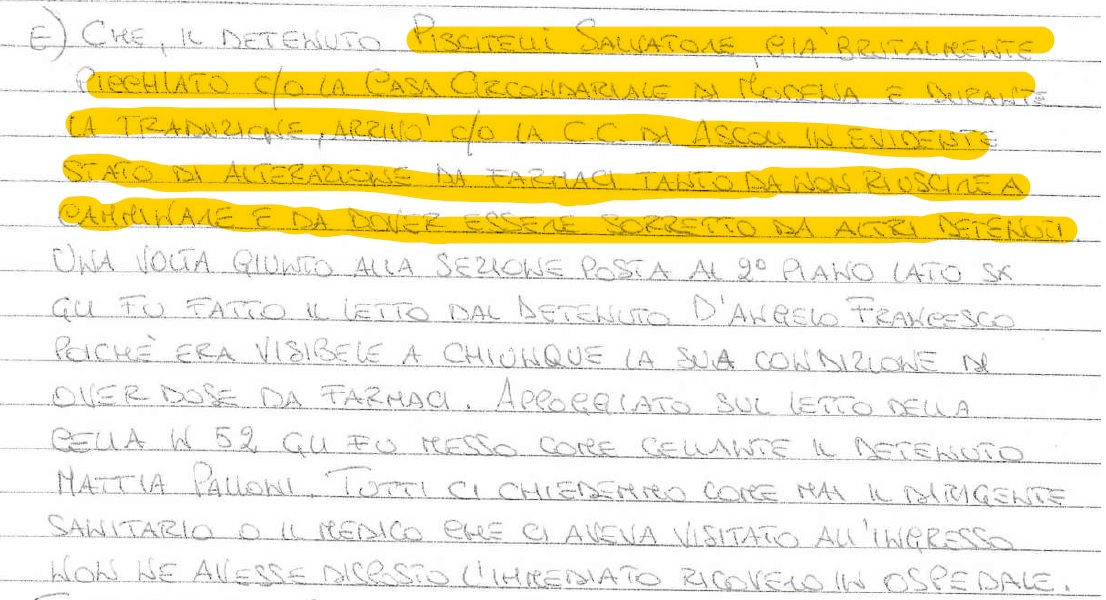 E) CHE, IL DETENUTO PISCITELLI SALVATORE, GIÀ BRUTALMENTE
PICCHIATO C/O LA CASA CIRCONDARIALE DI MODENA E DURANTE
LA TRADUZIONE, ARRIVO' C/O LA C.C. DI ASCOLI IN EVIDENTE
STATO DI ALTERAZIONE DA FARMACI TANTO DA NON RIUSCIRE A
CAMMINARE E DA DOVER ESSERE SORRETTO DA ALTRI DETENUTI.
UNA VOLTA GIUNTO ALLA SEZIONE POSTA AL 2° PIANO LATO SX
GLI FU FATTO IL LETTO DAL DETENUTO D'ANGELO FRANCESCO
POICHÈ ERA VISIBELE A CHIUNQUE LA SUA CONDIZIONE DI
OVER DOSE DA FARMACI. APPOGGIATO SUL LETTO DELLA
CELLA N 52 GLI FU MESSO COME CELLANTE IL DETENUTO
MATTIA PALLONI. TUTTI CI CHIEDEMMO COME MAI IL DIRIGENTE
SANITARIO O IL MEDICO CHE CI AVEVA VISITATO ALL'INGRESSO
NON NE AVESSE DISPOSTO L'IMMEDIATO RICOVERO IN OSPEDALE.